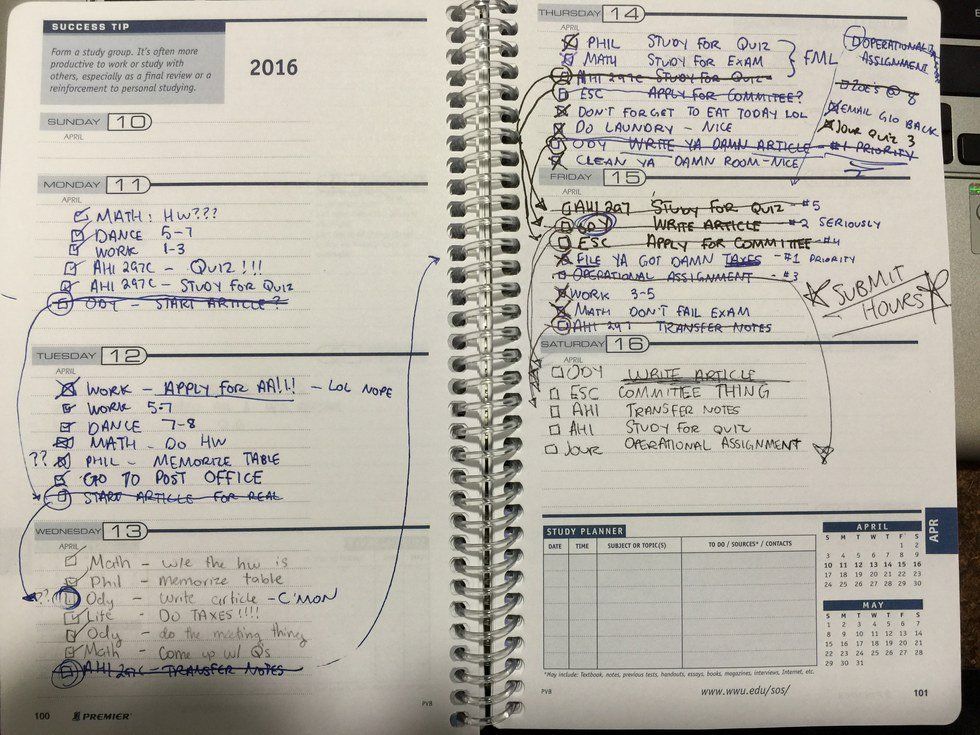 SUCCESS TIP
Form a study group. It's often more
productive to work or study with
others, especially as a final review or a
reinforcement to personal studying.
2016
SUNDAY 10
APRIL
MONDAY 11
APRIL
MATH: HW???
DANCE 5-7
WORK 1-3
AHI 297C - QUIZ!!!
AHI 297C - STUDY FOR QUIZ
ODY - START ARTICLE?
TUESDAY 12
APRIL
WORK - APPLY FOR AA!!! - LOL NOPE
WORK 5-7
DANCE 7-8
MATH - DO HW
?? PHIL - MEMORIZE TABLE
GO TO POST OFFICE
START ARTICLE FOR REAL
WEDNESDAY 13
APRIL
Math - w/e the hw is
Phil - memorize table
Ody - write article - C'MON
Life - DO TAXES!!!!
Ody - do the meeting thing
Math - Come up w/ Qs
AHI 297C - TRANSFER NOTES
100 PREMIER
PVB
THURSDAY 14
APRIL
PHIL STUDY FOR QUIZ
MATH STUDY FOR EXAM
FML
AHI 297C STUDY FOR QUIZ
ESC APPLY FOR COMMITEE?
DON'T FORGET TO EAT TODAY LOL
DO LAUNDRY - NICE
ODY WRITE YA DAMN ARTICLE - #1 PRIORITY
CLEAN YA DAMN ROOM - NICE
OPERATIONAL
ASSIGNMENT
ZOE'S @ 8
EMAIL GIO BACK
JOUR QUIZ 3
FRIDAY 15
APRIL
AHI 297 STUDY FOR QUIZ - #5
ODY WRITE ARTICLE - #2 SERIOUSLY
ESC APPLY FOR COMMITTEE - #4
FILE YA GOT DAMN TAXES - #1 PRIORITY
OPERATIONAL ASSIGNMENT - #3
WORK 3-5
MATH DON'T FAIL EXAM
AHI 297 TRANSFER NOTES
SUBMIT
HOURS
SATURDAY 16
APRIL
ODY WRITE ARTICLE
ESC COMMITTEE THING
AHI TRANSFER NOTES
AHI STUDY FOR QUIZ
JOUR OPERATIONAL ASSIGNMENT
STUDY PLANNER
DATE TIME SUBJECT OR TOPIC(S) TO DO / SOURCES* / CONTACTS
*May include: Textbook, notes, previous tests, handouts, essays, books, magazines, interviews, Internet, etc.
APRIL
S M T W T F S
1 2
3 4 5 6 7 8 9
10 11 12 13 14 15 16
17 18 19 20 21 22 23
24 25 26 27 28 29 30
MAY
S M T W T F S
1 2 3 4 5 6 7
8 9 10 11 12 13 14
15 16 17 18 19 20 21
22 23 24 25 26 27 28
29 30 31
APR
PVB
www.wwu.edu/sos/
101